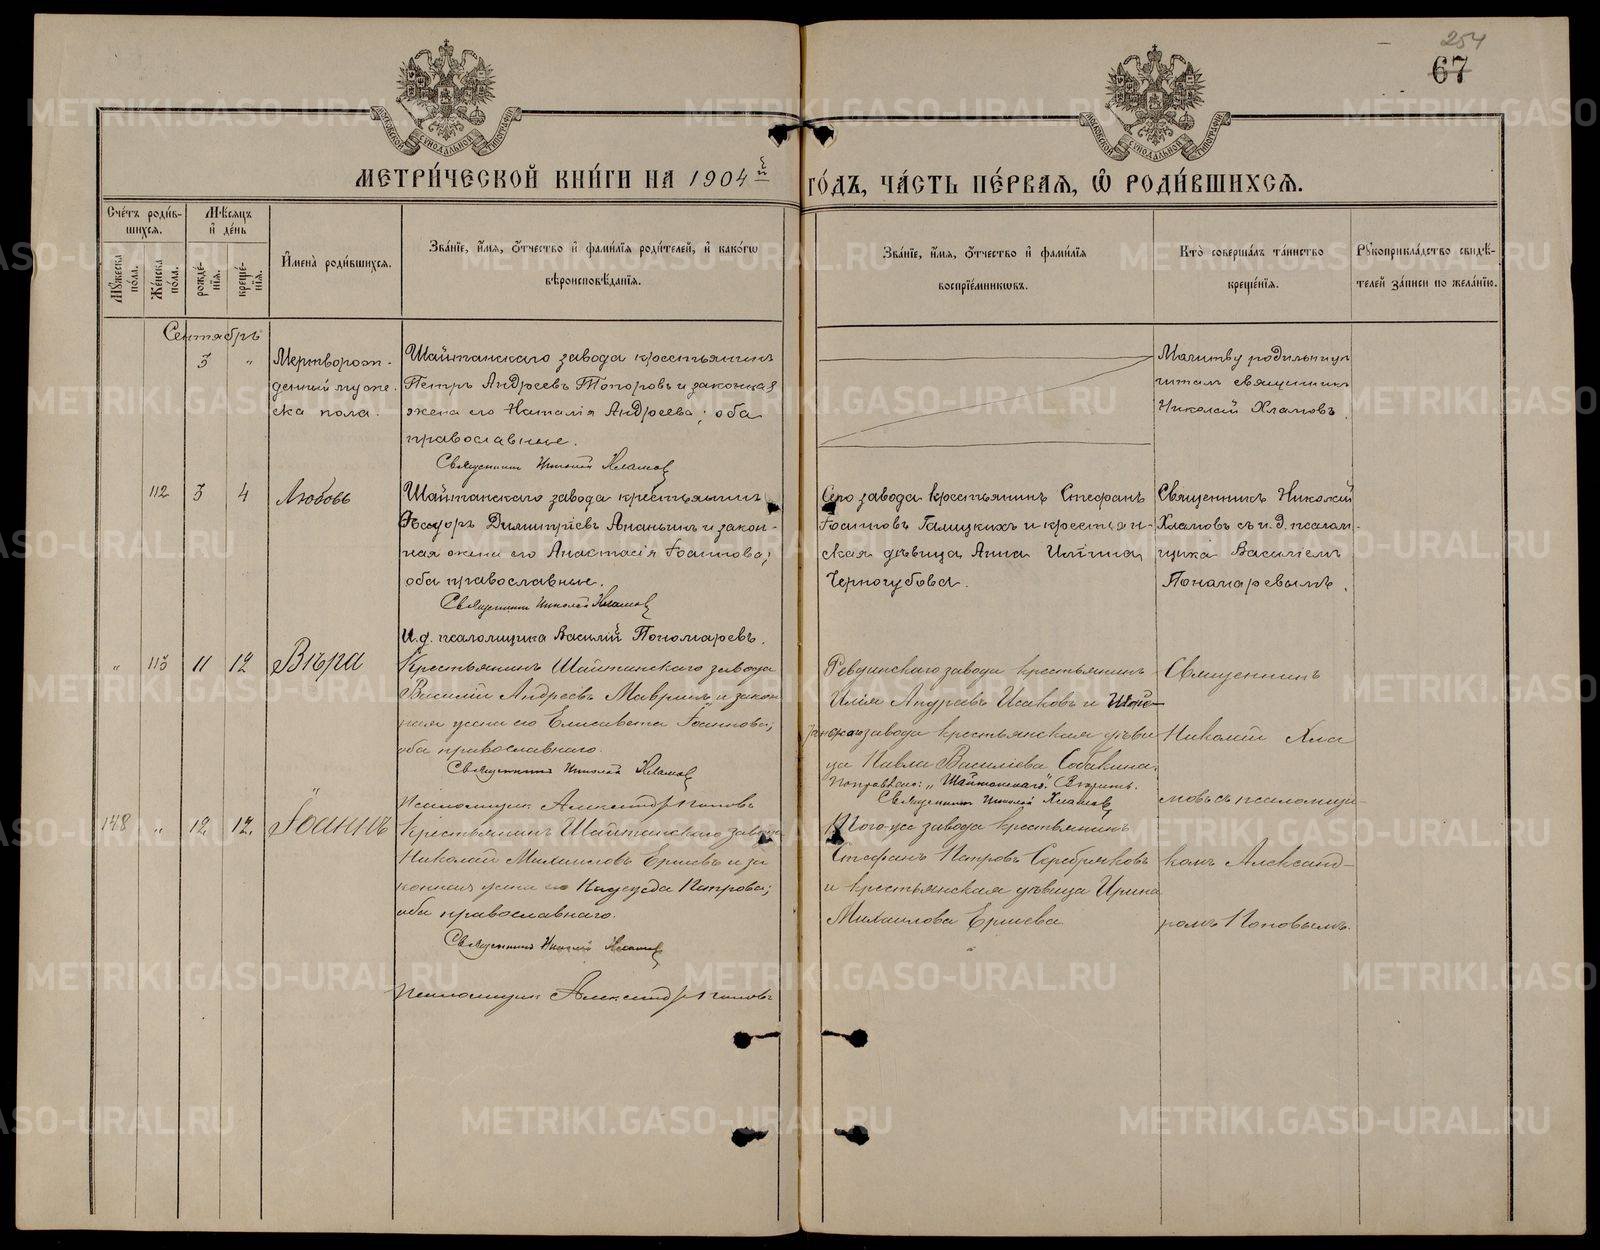 254
67
МОСКОВСКОЙ СУНОДАЛЬНОЙ ТИПОГРАФІИ
МОСКОВСКОЙ СУНОДАЛЬНОЙ ТИПОГРАФІИ
МЕТРИ́ЧЕСКОЙ КНИ́ГИ НА 1904й
ГО́ДЪ, ЧА́СТЬ ПЕ́РВАЯ, Ѽ РОДИ́ВШИХСЯ.
Сче́тъ роди́в-
шихся.
Му́жеска по́ла.
Же́нска по́ла.
Мѣ́сяцъ
и́ де́нь
рожде́-
нія.
креще́-
нія.
И́мена̀ роди́вшихся.
Зва́ніе, и́мя, о́тчество и́ фами́лія роди́телей, и́ како́гѡ
вѣроисповѣ́данія.
Зва́ніе, и́мя, о́тчество и́ фами́лія
воспріе́мниковъ.
Кто̀ соверша́лъ та́инство
креще́нія.
Рукоприкла́дство свидѣ́-
телей за́писи по жела́нію.
Сентябрь
3 „ Мертворож-
денный муже-
ска пола.
Шайтанскаго завода крестьянинъ
Петръ Андреевъ Топоровъ и законная
жена его Наталія Андреева; оба
православные.
Священникъ Николай Хламовъ
Молитву родильницѣ
читалъ священникъ
Николай Хламовъ.
112 3 4 Любовь
Шайтанскаго завода крестьянинъ
Ѳеодоръ Димитріевъ Ананьинъ и закон-
ная жена его Анастасія Іоаннова;
оба православные.
Священникъ Николай Хламовъ
И.д. псаломщика Василій Пономаревъ.
Сего завода крестьянинъ Стефанъ
Іоанновъ Галицкихъ и крестьян-
ская дѣвица Анна Ильина
Черногубова.
Священникъ Николай
Хламовъ съ и.д. псалом-
щика Василіемъ
Пономаревымъ.
„ 113 11 12 Вѣра
Крестьянинъ Шайтанскаго завода
Василій Андреевъ Мавринъ и закон
ная жена его Елисавета Іоаннова;
оба православнаго.
Священникъ Николай Хламовъ
Псаломщикъ Александръ Поповъ
Ревдинскаго завода крестьянинъ
Илія Андреевъ Исаковъ и Шай-
танскаго завода крестьянская дѣви
ца Павла Василіева Собакина.
Поправлено: „Шайтанскаго". Вѣрить.
Священникъ Николай Хламовъ
Священникъ
Николай Хла
мовъ съ псаломщи-
комъ Александ-
ромъ Поповымъ.
148 „ 12 12. Іоаннъ
Крестьянинъ Шайтанскаго завода
Николай Михаиловъ Ершевъ и за
конная жена его Надежда Петрова;
оба православнаго.
Священникъ Николай Хламовъ
Псаломщикъ Александръ Поповъ
Того-же завода крестьянинъ
Стефанъ Петровъ Серебряковъ
и крестьянская дѣвица Ирина
Михаилова Ершева